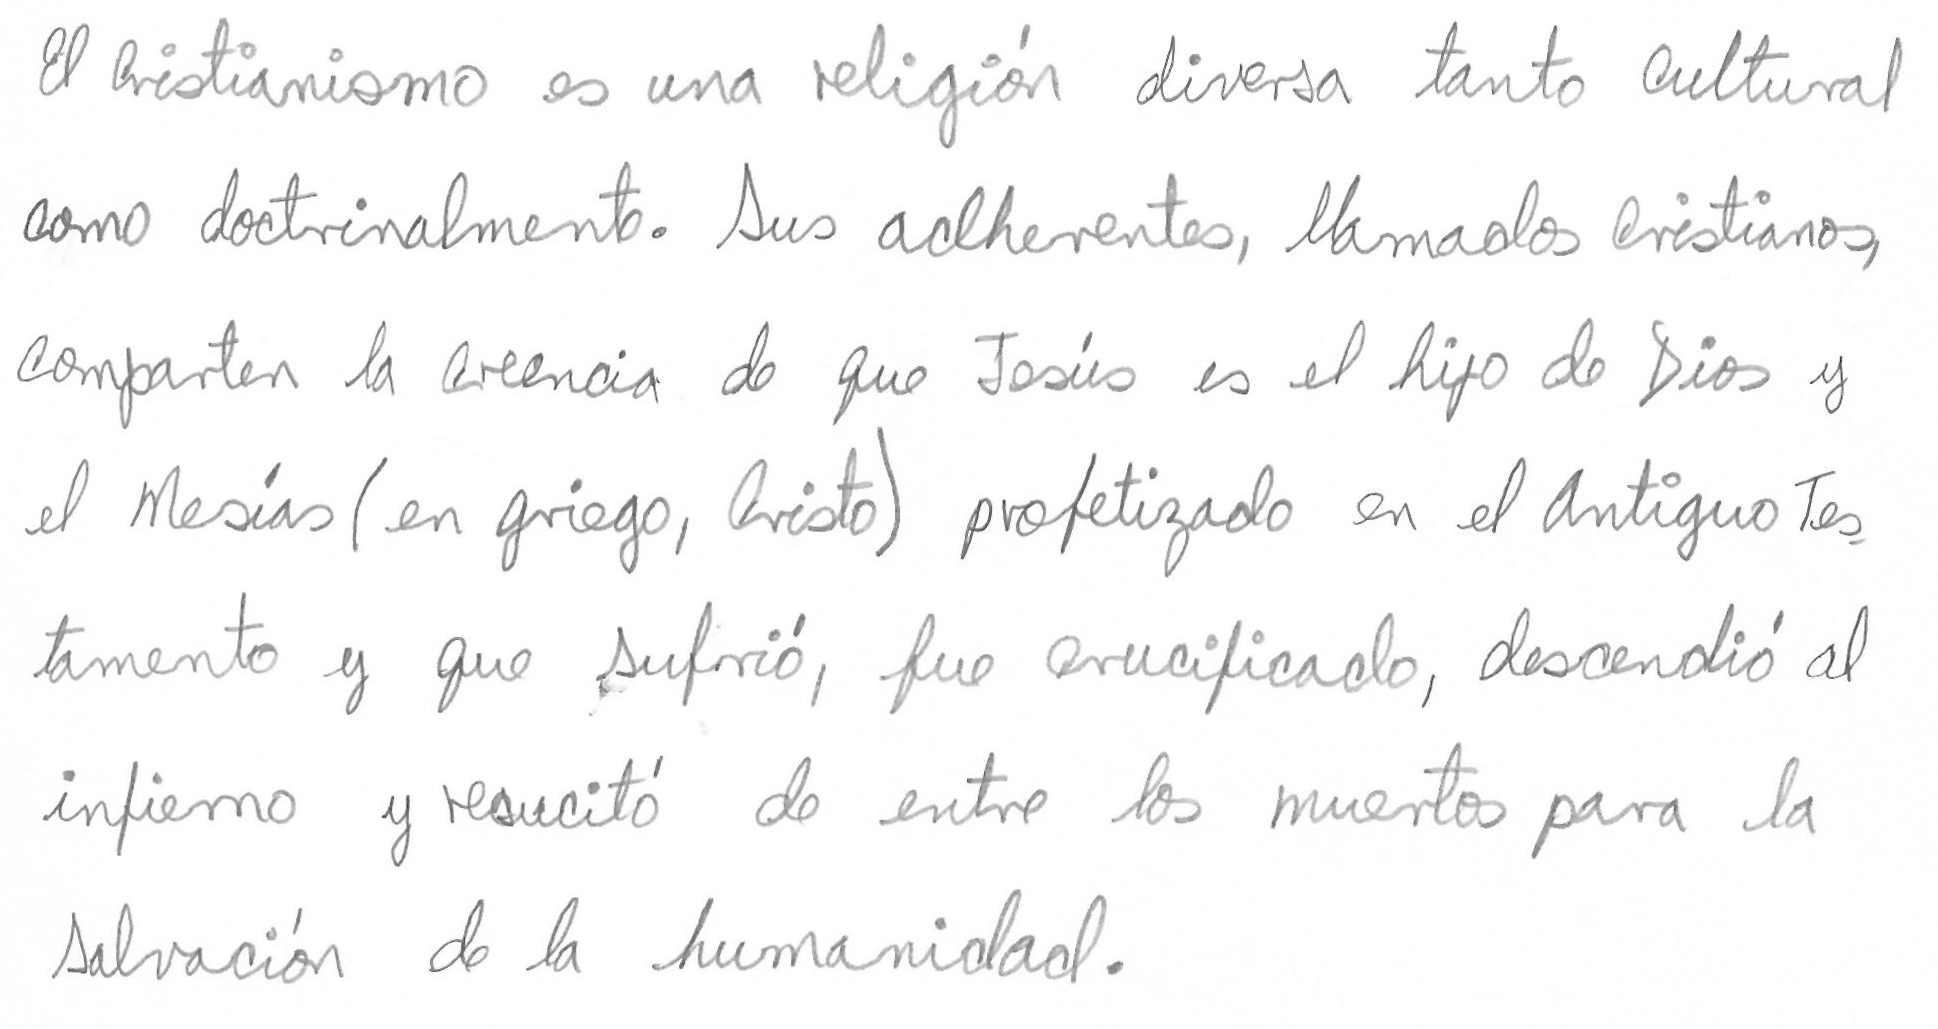 El cristianismo es una religión diversa tanto cultural
como doctrinalmente. Sus adherentes, llamados cristianos,
comparten la creencia de que Jesús es el hijo de Dios y
el Mesías (en griego, Cristo) profetizado en el Antiguo Tes-
tamento y que sufrió, fue crucificado, descendió al
infierno y resucitó de entre los muertos para la
salvación de la humanidad.